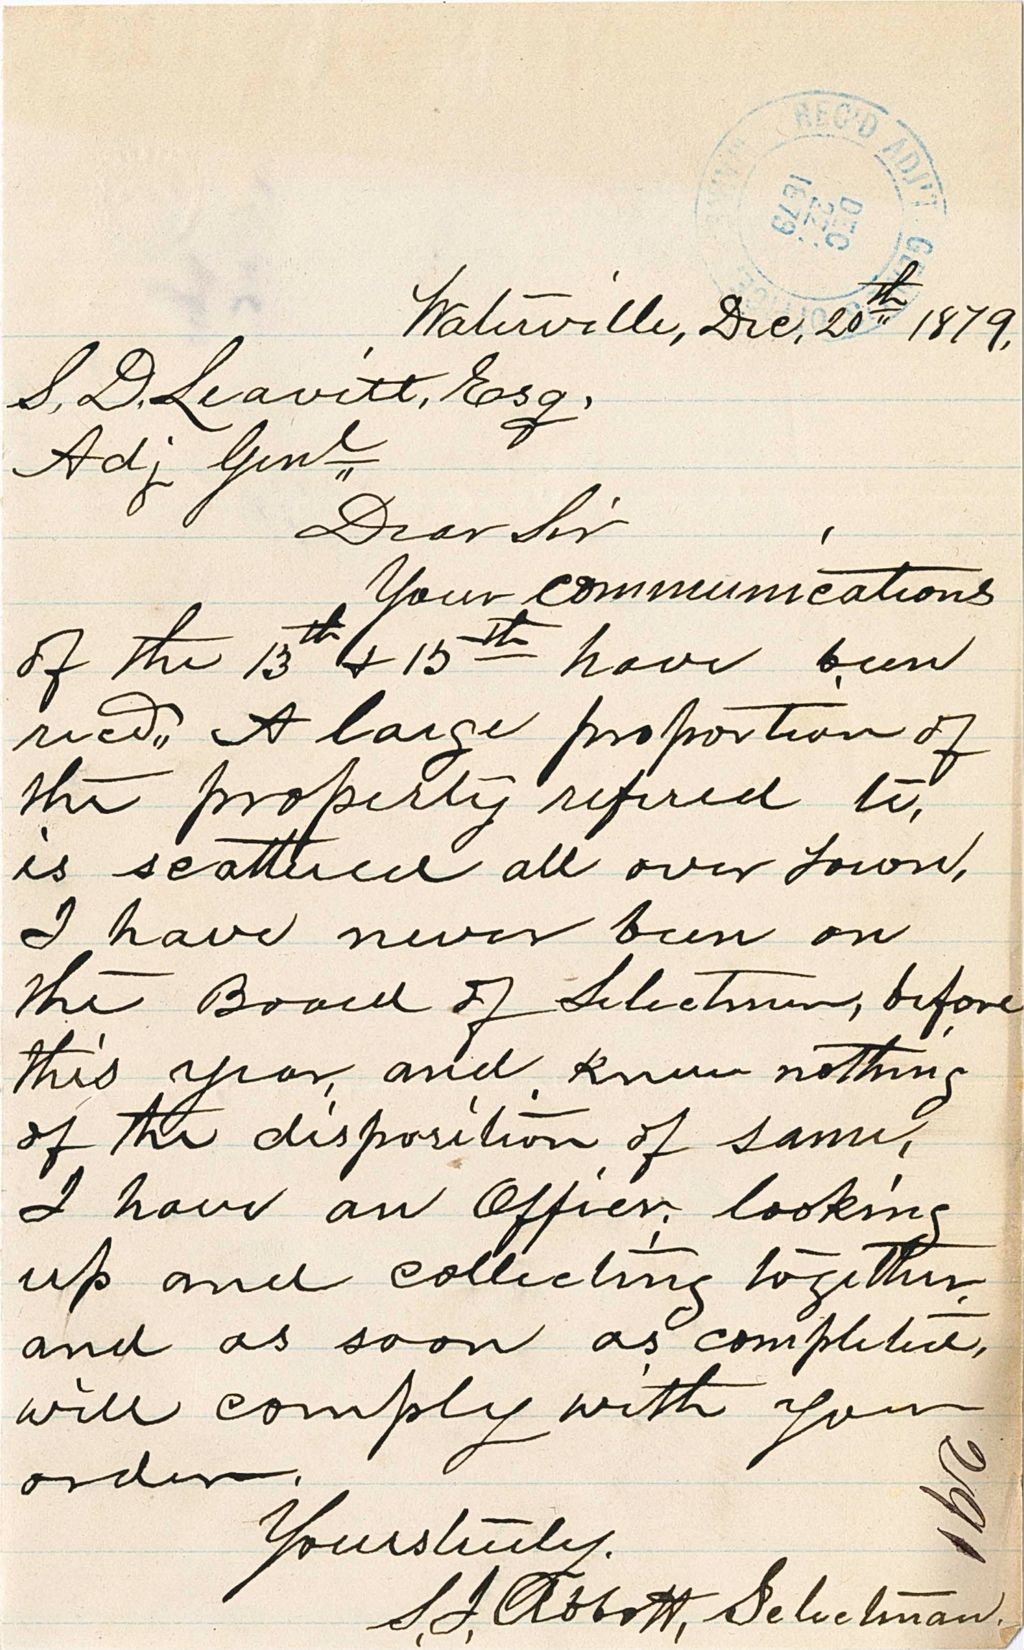 REC'D ADJ'T GEN
DEC
22
1879
Waterville, Dec. 20th 1879.
S. D. Leavitt, Esq.
Adj Genl
Dear Sir
Your communications
of the 13th & 15th have been
recd. A large proportion of
the property refered to,
is scattered all over town,
I have never been on
the Board of Selectmen, before
this year, and know nothing
of the disposition of same,
I have an Officer, looking
up and collecting together,
and as soon as completed,
will comply with your
order.
Yours truly.
S. I. Abbott, Selectman.
291